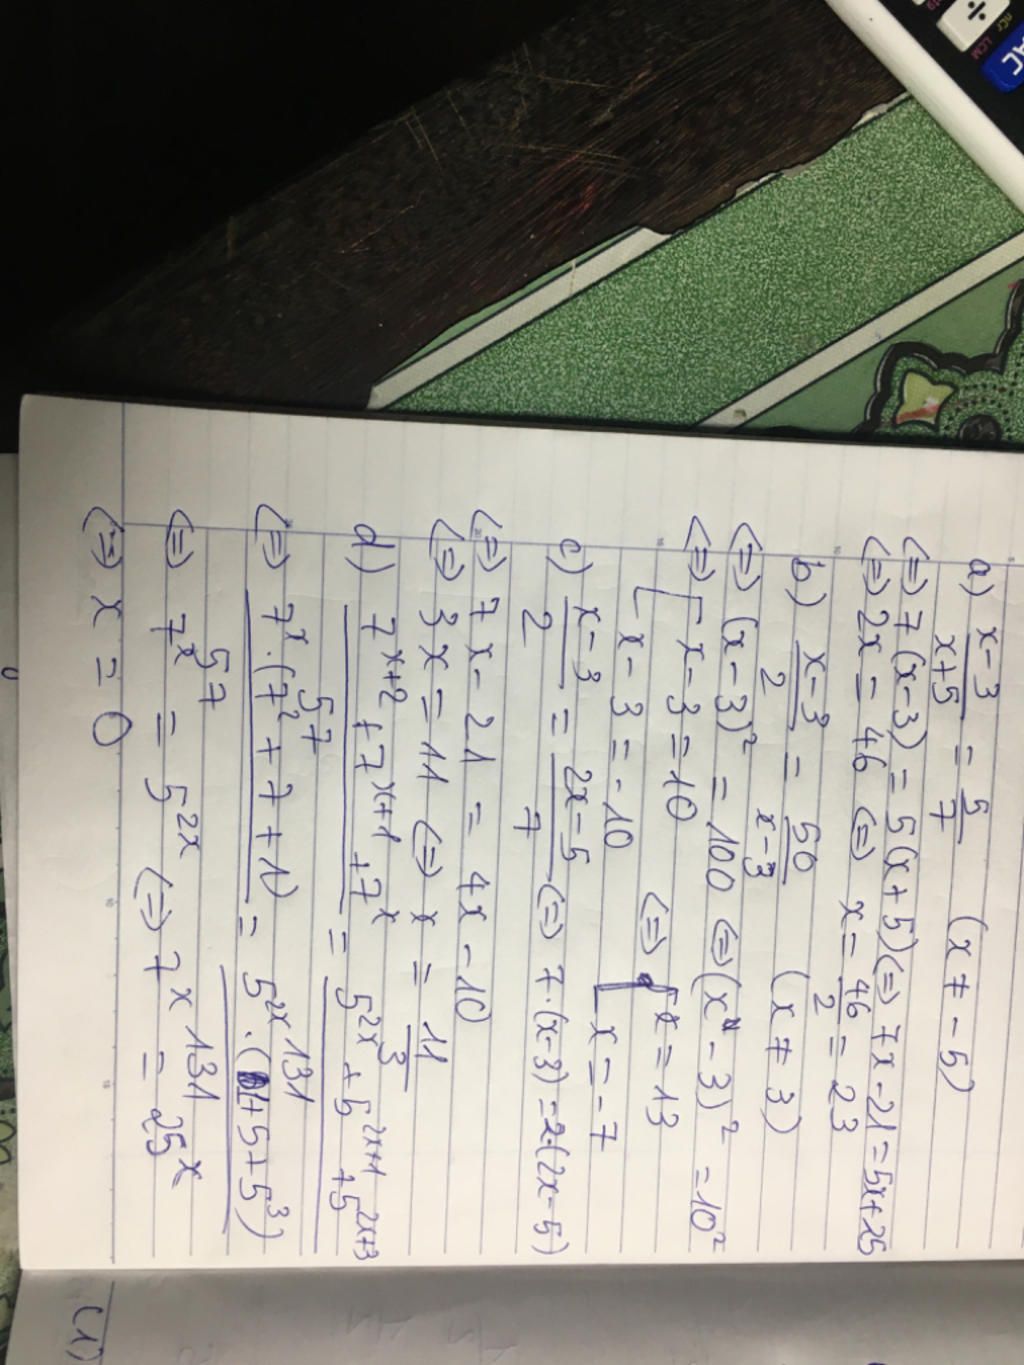 a) x-3/x+5 = 5/7 (x ≠ -5)
(=) 7(x-3) = 5(x+5) (=) 7x-21=5x+25
(=) 2x = 46 (=) x = 46/2 = 23
b) x-3/2 = 50/x-3 (x ≠ 3)
(=) (x-3)² = 100 (=) (x-3)² = 10²
(=) [x-3=10 (=) [x=13
x-3=-10 x=-7
c) x-3/2 = 2x-5/7 (=) 7.(x-3)=2.(2x-5)
(=) 7x-21 = 4x-10
(=) 3x=11 (=) x = 11/3
d) 7^x+2 + 7^x+1 + 7^x / 57 = 5^2x + 5^2x+1 + 5^2x+3 / 131
(=) 7^x.(7²+7+1) / 57 = 5^2x.(1+5+5³) / 131
(=) 7^x = 5^2x (=) 7^x = 25^x
(=) x = 0
(1)
AC
÷
LCM
nCr